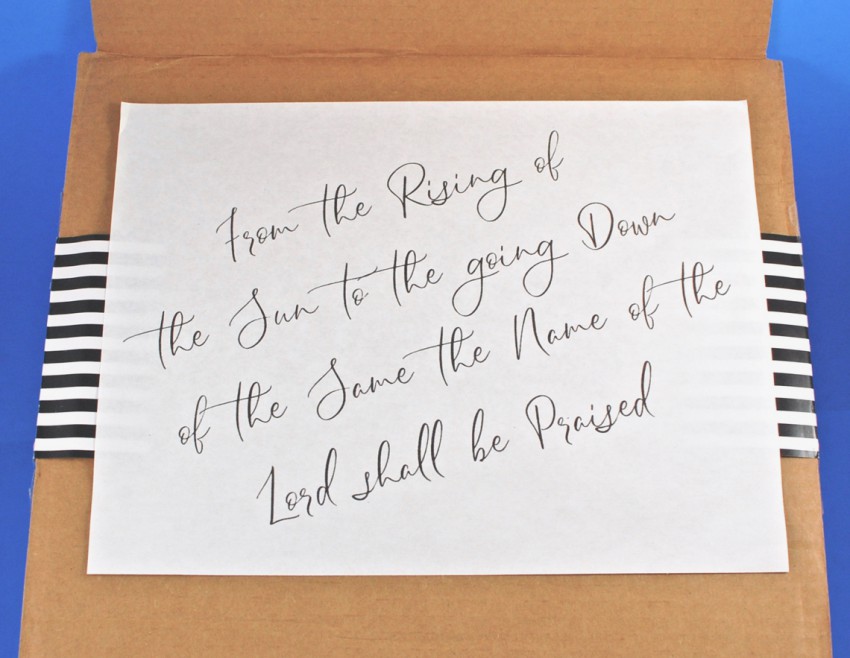 From the Rising of
the Sun to the going Down
of the Same the Name of the
Lord shall be Praised